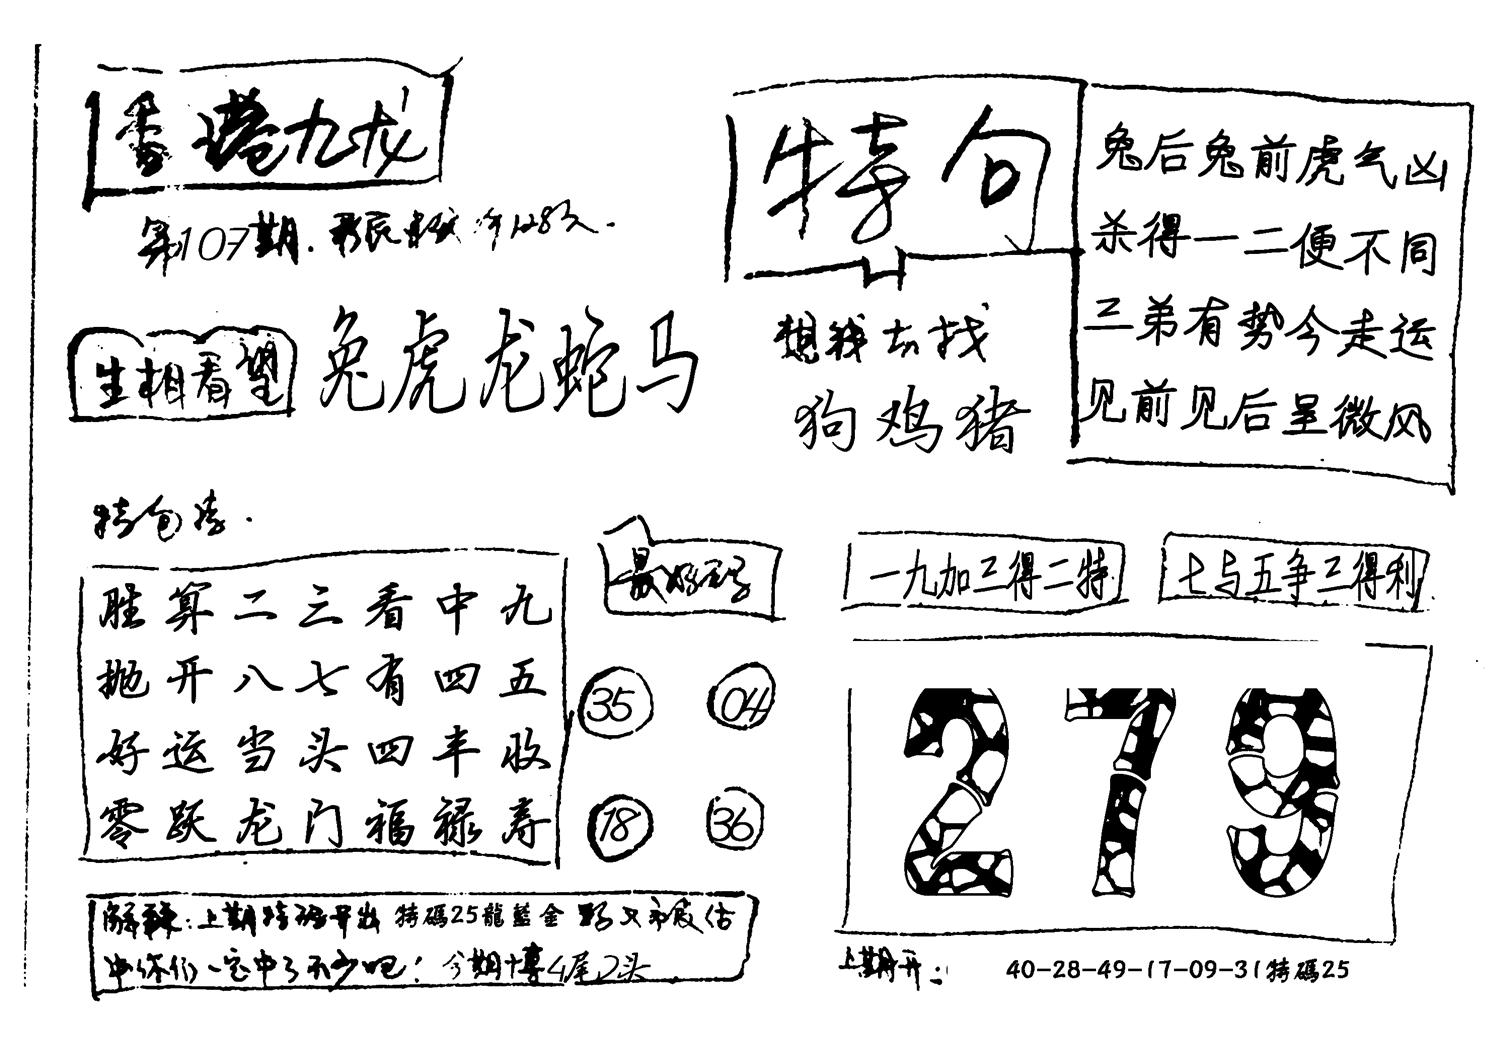 香港九龙
第107期.
生相看望
兔虎龙蛇马
特句
兔后兔前虎气凶
杀得一二便不同
三弟有势今走运
见前见后呈微风
想我去找
狗鸡猪
特包
胜算二三看中九
抛开八七有四五
好运当头四丰收
零跃龙门福禄寿
最好码
35
04
18
36
一九加三得二特
七与五争三得利
279
上期特码开出 特碼25龍藍金
你们一定中了不少吧! 今期博4尾2头
上期开:
40-28-49-17-09-31特碼25